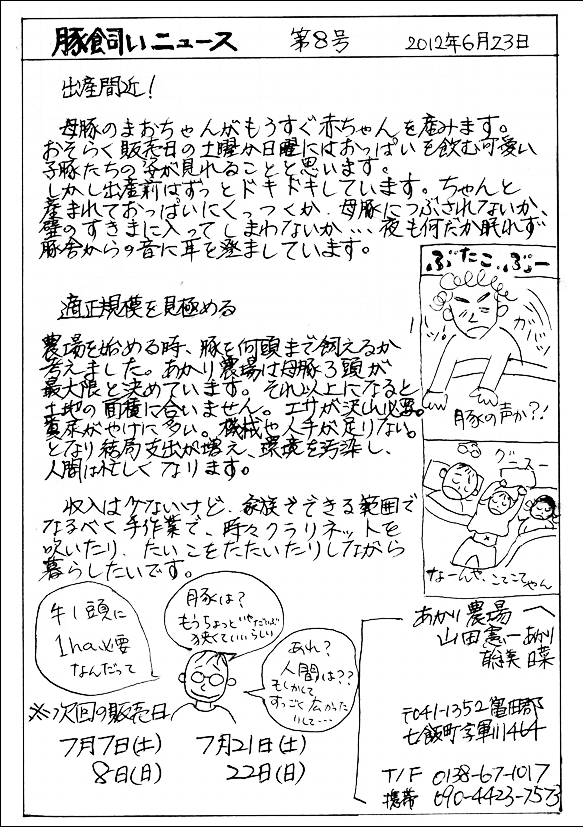 豚飼いニュース 第8号 2012年6月23日
出産間近！
母豚のまおちゃんがもうすぐ赤ちゃんを産みます。
おそらく販売日の土曜か日曜にはおっぱいを飲む可愛い
子豚たちの姿が見れることと思います。
しかし出産前はずっとドキドキしています。ちゃんと
産まれておっぱいにくっつくか、母豚につぶされないか、
壁のすきまに入ってしまわないか…夜も何だか眠れず
豚舎からの音に耳を澄ましています。
ぶたこ、ぶー
ガバッ
豚の声か?!
グースー
なーんや、ここでやん
適正規模を見極める
農場を始める時、豚を何頭まで飼えるか
考えました。あかり農場は母豚3頭が
最大限と決めています。それ以上になると
土地の面積に合いません。エサが沢山必要。
糞尿がやけに多い。機械や人手が足りない。
となり結局支出が増え、環境を汚染し、
人間は忙しくなります。
収入は少ないけど、家族でできる範囲で
なるべく手作業で、時々クラリネットを
吹いたり、たいこをたたいたりしながら
暮らしたいです。
牛1頭に
1ha必要
なんだって
豚は?
もうちょっと
狭くていいらしい
あれ?
人間は??
もしかして
すっごく広かった
りして…
※次回の販売日
7月7日(土) 7月21日(土)
8日(日) 22日(日)
あかり農場
山田憲一 あかり
日菜
〒041-1352 亀田郡
七飯町字軍川464
T/F 0138-67-1017
携帯 090-4423-7573